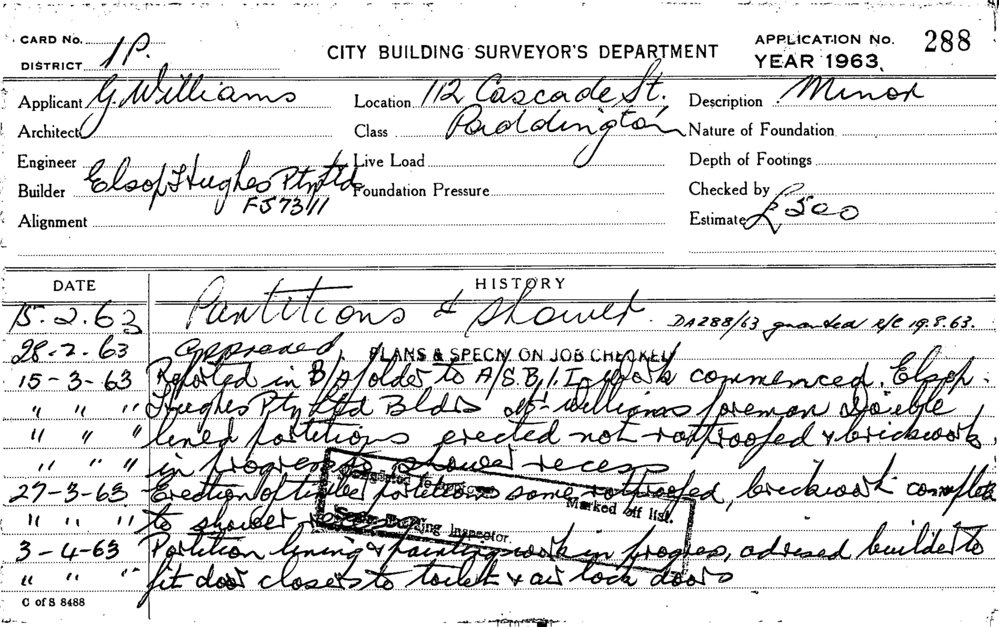 CARD No. I.P. CITY BUILDING SURVEYOR'S DEPARTMENT APPLICATION No. 288
DISTRICT YEAR 1963.
Applicant G. Williams Location 112 Cascade St. Description Minor
Architect Class Paddington Nature of Foundation
Engineer Live Load Depth of Footings
Builder Elsop Hughes Pty Ltd Foundation Pressure Checked by
FJ7311
Alignment Estimate £500
DATE HISTORY
15.2.63 Partitions & shower. DA288/63 granted R/C 19.8.63.
28-2-63 approved PLANS & SPECN. ON JOB CHECKED
15-3-63 Reported in B/folder to A/S.B.I. work commenced. Elsop
" " " Hughes Pty Ltd Bldrs Williams foreman double
" " " lined partitions erected not ratproofed & brickwork
" " " in progress to shower recess
27-3-63 Erection of timber partitions some ratproofed, brickwork complete
Marked off list.
" " " to shower recess
Senior Building Inspector.
3-4-63 Partition lining & painting work in progress, advised builder to
" " " fit door closers to toilet & air lock doors
C of S 8488